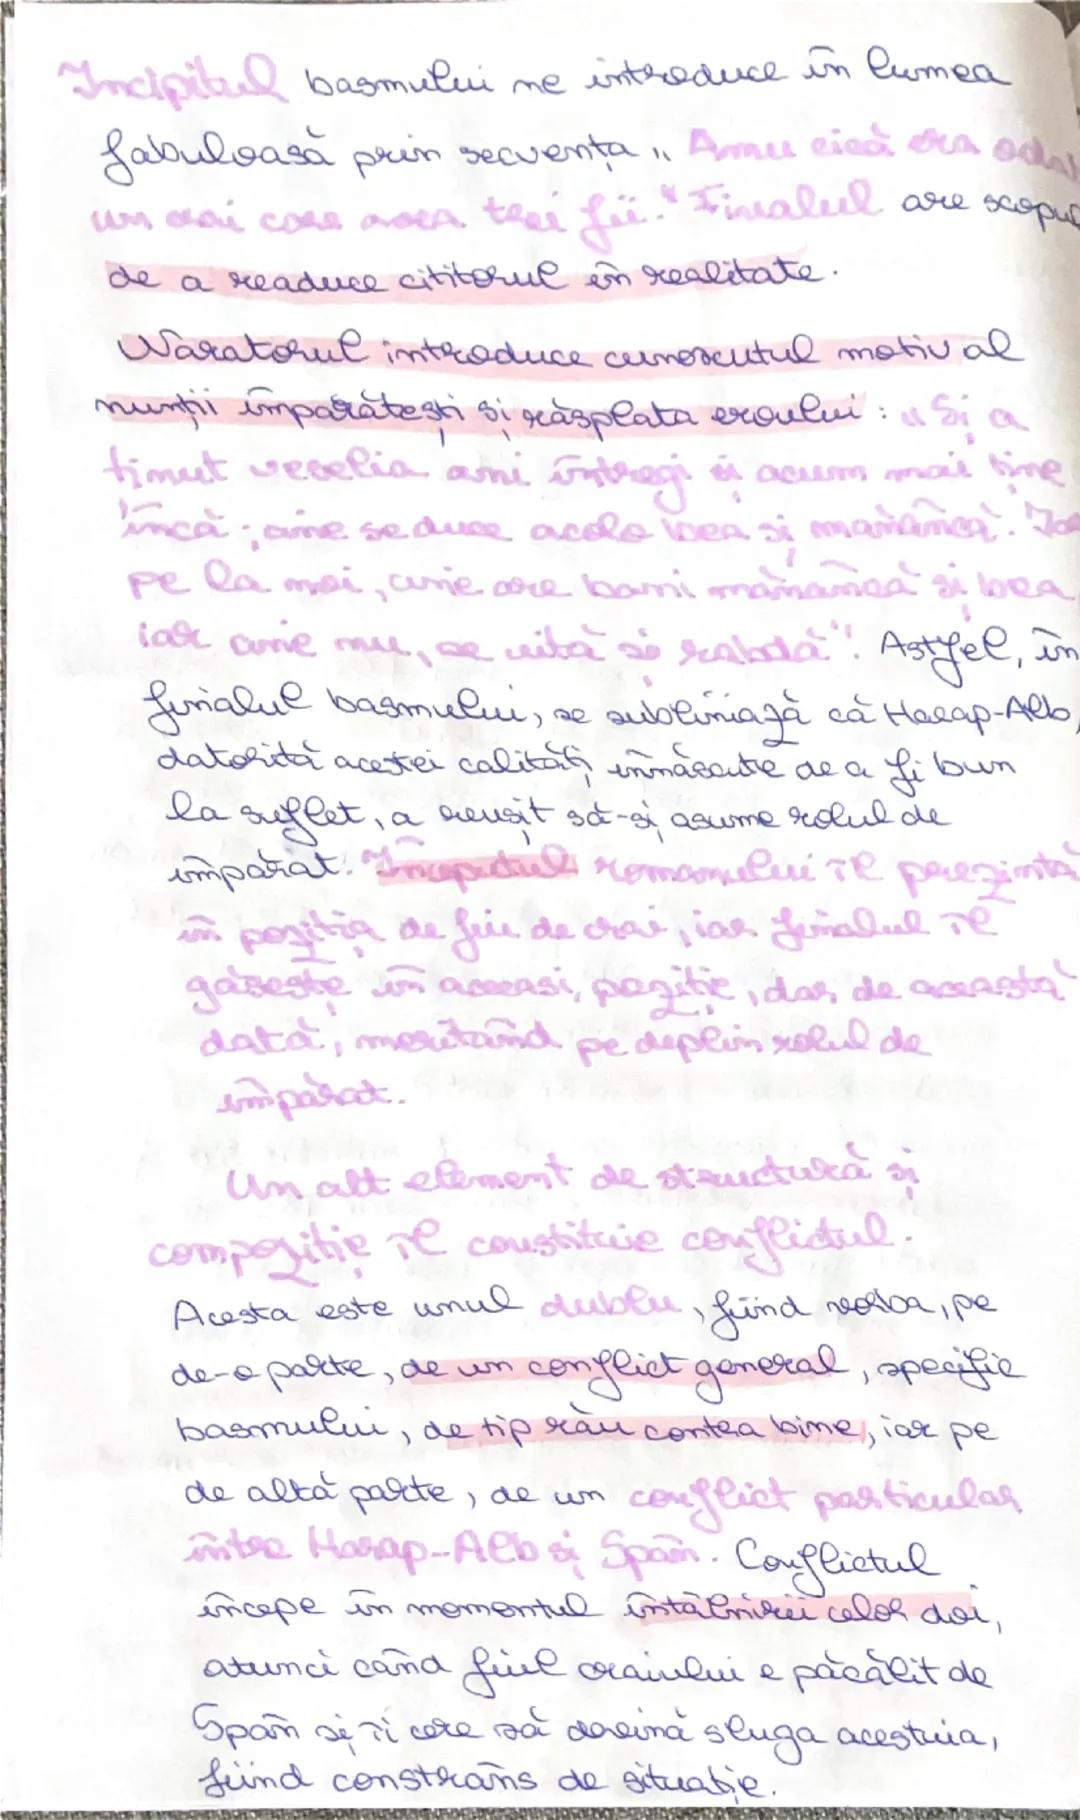 Incipitul basmului ne introduce în lumea
fabuloasă prin secvența „ Amu cică era odat
un crai care avea trei fii." Finalul are scopul
de a readuce cititorul în realitate.
Naratorul introduce cunoscutul motiv al
nunții împărătești și răsplata eroului : „ Și a
ținut veselia ani întregi și acum mai ține
încă ; cine se duce acolo bea și mănâncă. Iar
pe la noi, cine are bani mănâncă și bea,
iar cine nu, se uită și rabdă". Astfel, în
finalul basmului, se subliniază că Harap-Alb,
datorită acestei calități înnăscute de a fi bun
la suflet, a reușit să-și asume rolul de
împărat. Începutul romanului îl prezintă
în poziția de fiu de crai, iar finalul îl
găsește în aceeasi poziție, dar de această
dată, meritând pe deplin rolul de
împărat.
Un alt element de structură și
compoziție îl constituie conflictul.
Acesta este unul dublu, fiind vorba, pe
de-o parte, de un conflict general, specific
basmului, de tip rău contra bine, iar pe
de altă parte, de un conflict particular
între Harap-Alb și Spân. Conflictul
începe în momentul întâlnirii celor doi,
atunci când fiul craiului e păcălit de
Spân și îi cere să devină sluga acestuia,
fiind constrâns de situație.